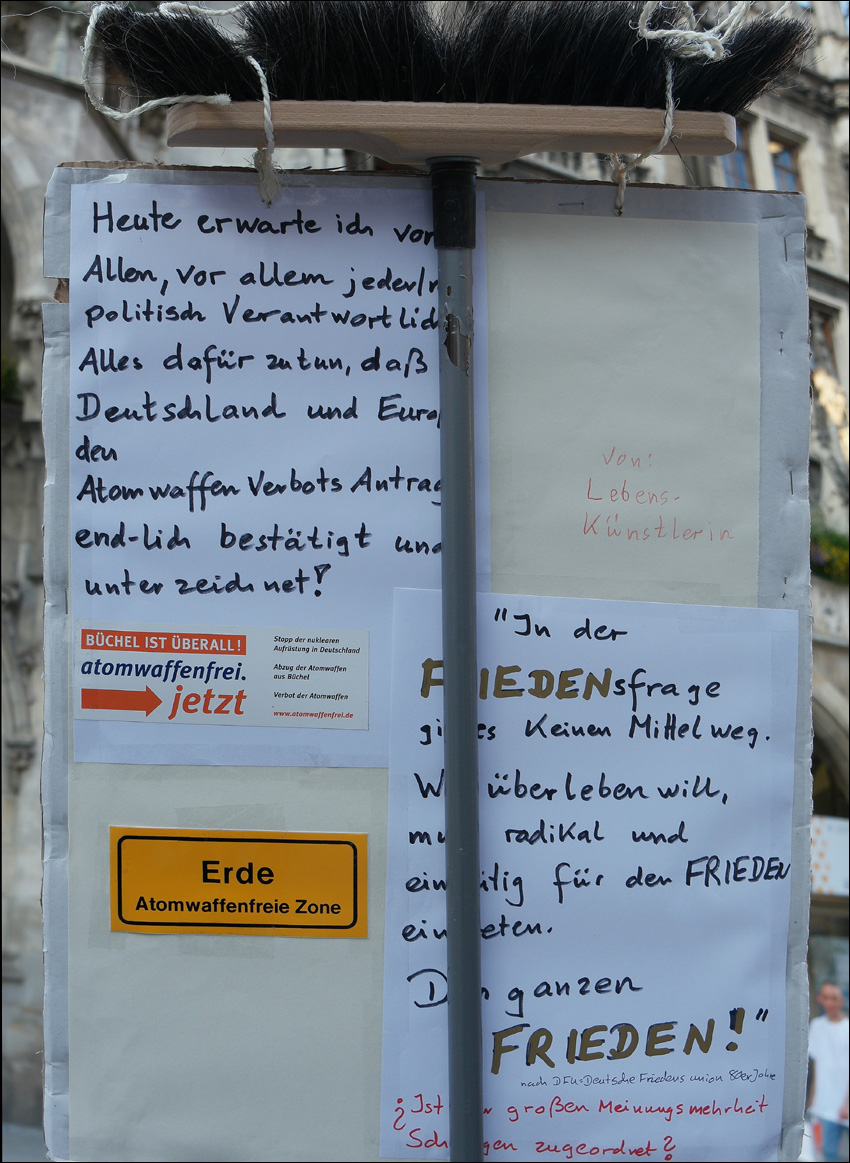 Heute erwarte ich von
Allen, vor allem jeder/n
politisch Verantwortlich
Alles dafür zu tun, daß
Deutschland und Euro
den
Atomwaffen Verbots Antrag
end-lich bestätigt und
unterzeichnet!
BÜCHEL IST ÜBERALL!
atomwaffenfrei.
jetzt
Stopp der nuklearen
Aufrüstung in Deutschland
Abzug der Atomwaffen
aus Büchel
Verbot der Atomwaffen
www.atomwaffenfrei.de
Erde
Atomwaffenfreie Zone
von:
Lebens-
Künstlerin
"In der
FRIEDENSfrage
gi es Keinen Mittelweg.
W überleben will,
mu radikal und
ein tig für den FRIEDEN
ein eten.
D n ganzen
FRIEDEN!"
nach DFU=Deutsche Friedens union 80er Jahre
¿Ist großen Meinungsmehrheit
Sch gen zugeordnet?